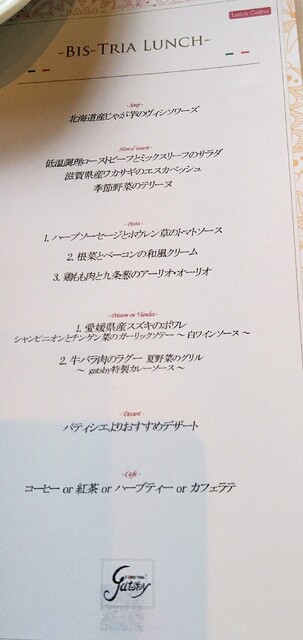 Lunch Course
-BIS-TRIA LUNCH-
- Soup -
北海道産じゃが芋のヴィシソワーズ
- Hors d'œuvre -
低温調理ローストビーフとミックスリーフのサラダ
滋賀県産ワカサギのエスカベッシュ
季節野菜のテリーヌ
- Pasta -
1. ハーブソーセージとホウレン草のトマトソース
2. 根菜とベーコンの和風クリーム
3. 鶏もも肉と九条葱のアーリオ・オーリオ
- Poisson ou Viandes -
1. 愛媛県産スズキのポワレ
シャンピニオンとチンゲン菜のガーリックソテー ～ 白ワインソース ～
2. 牛バラ肉のラグー 夏野菜のグリル
～ gatsby特製カレーソース ～
- Dessert -
パティシエよりおすすめデザート
- Café -
コーヒー or 紅茶 or ハーブティー or カフェラテ
gatsby